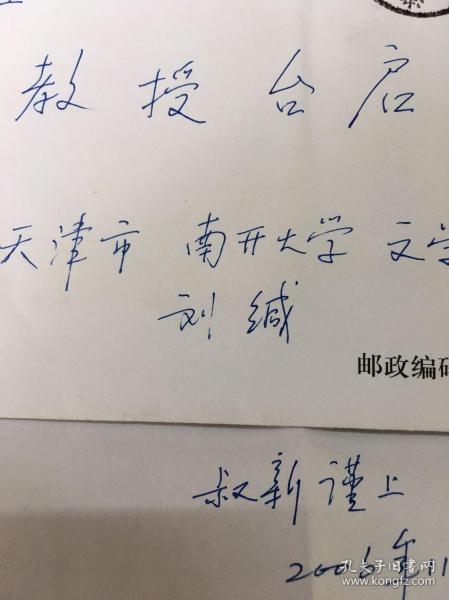 教授台启
天津市 南开大学 文学
刘缄
邮政编码
叔新谨上
2006年11
孔夫子旧书网
www.kongfz.com